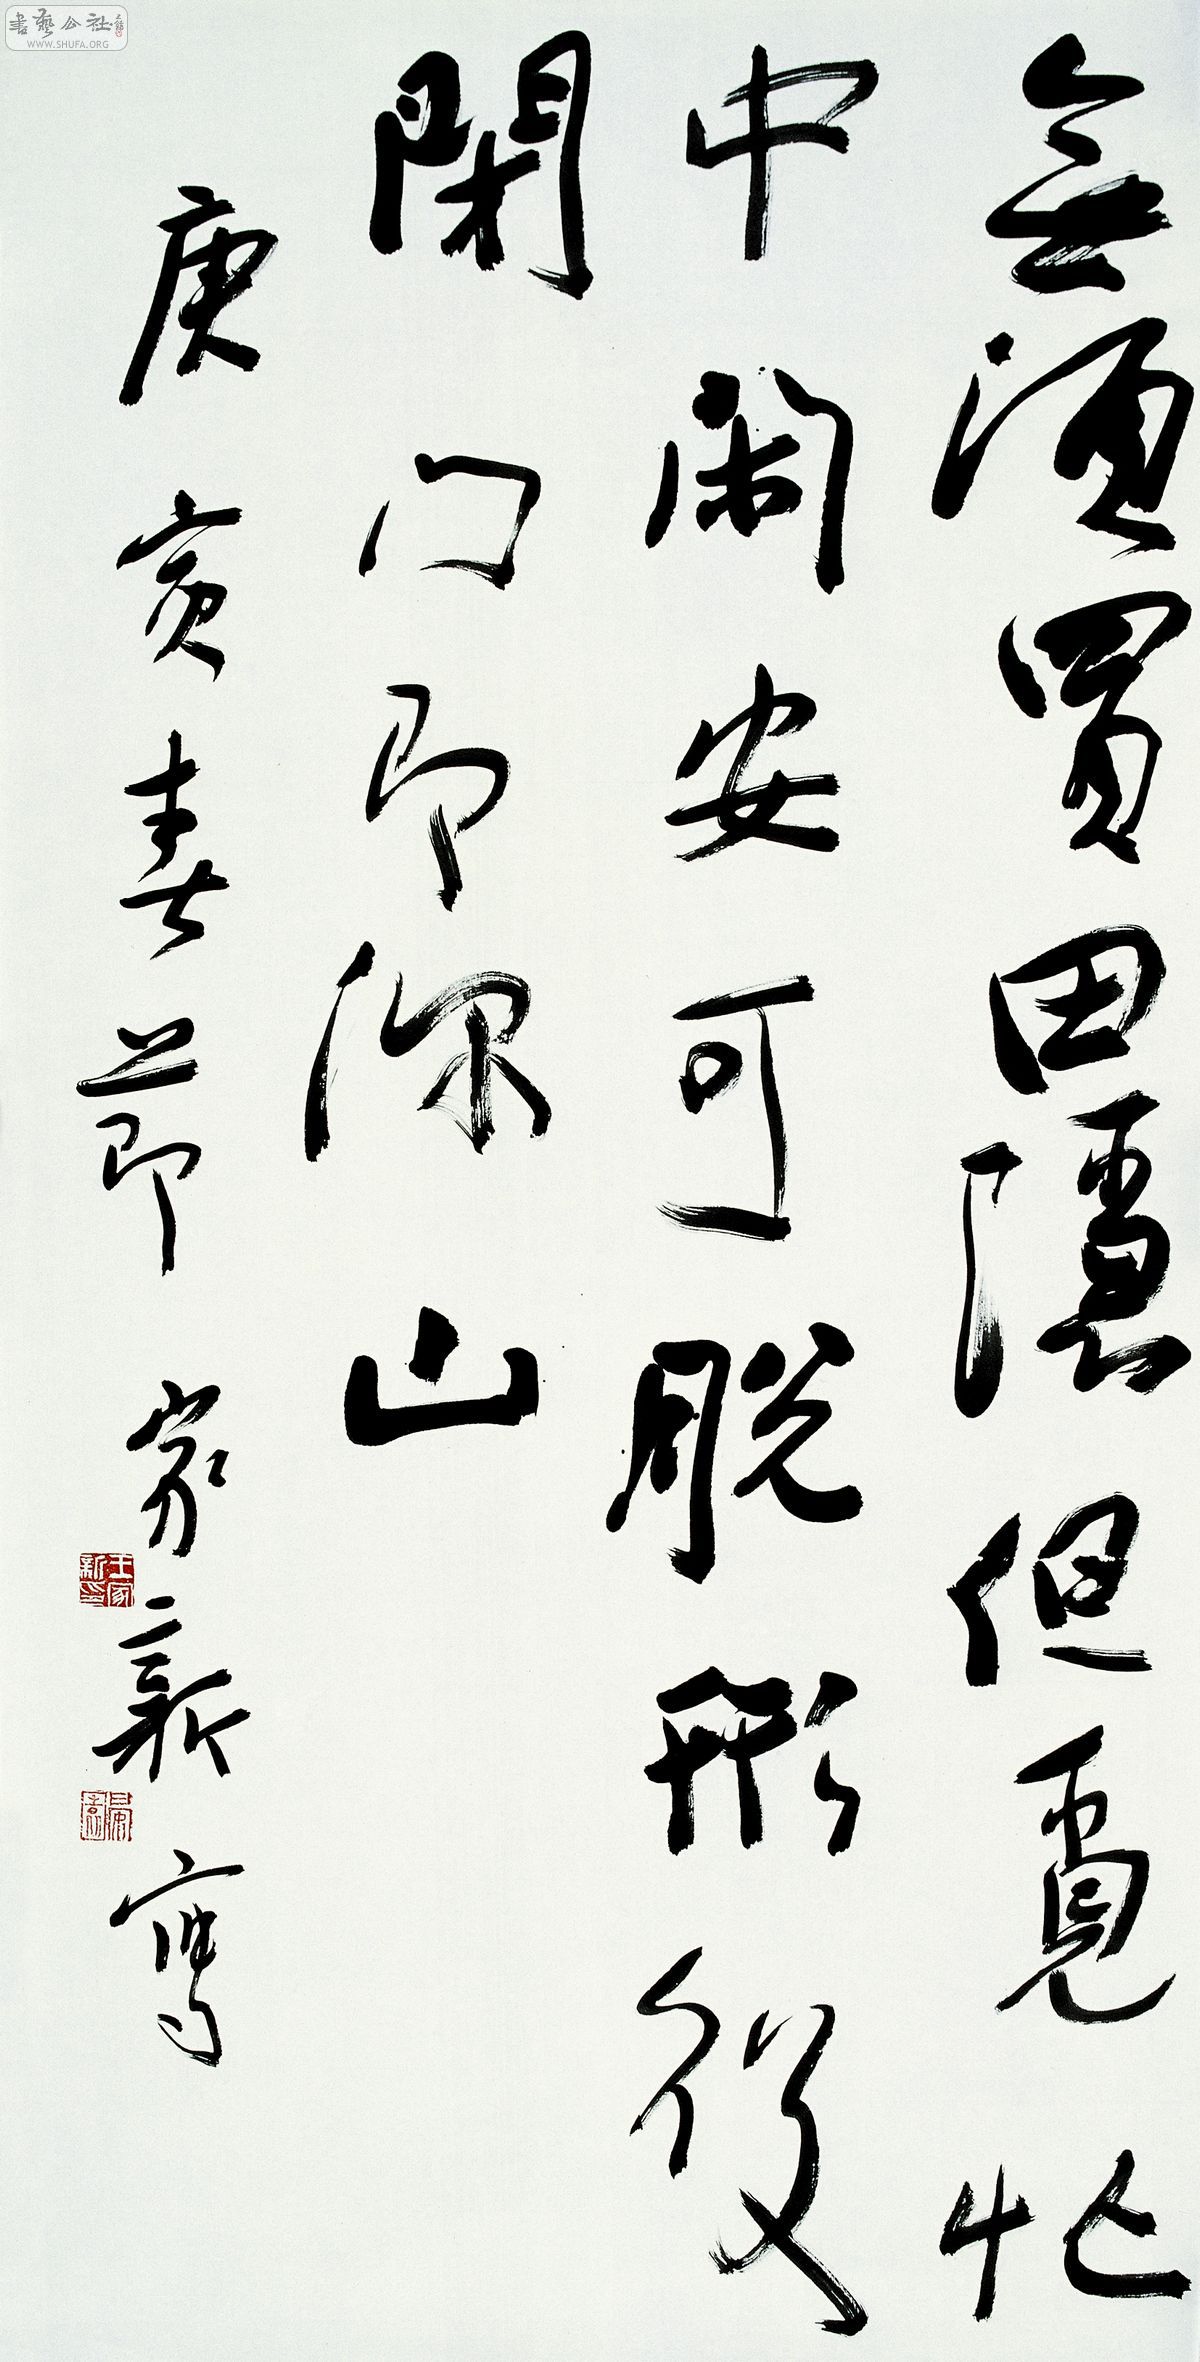 無須買田隱但覓忙
中閑安可脫形役
閉門即深山
庚寅春節家新寫
王家新印
書藝公社
WWW.SHUFA.ORG